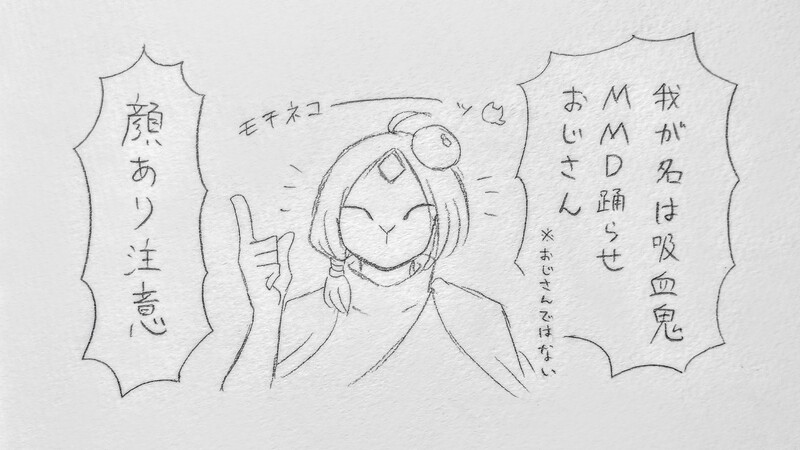 我が名は吸血鬼
MMD踊らせ
おじさん
※おじさんではない
モチネコーッ
顔あり注意